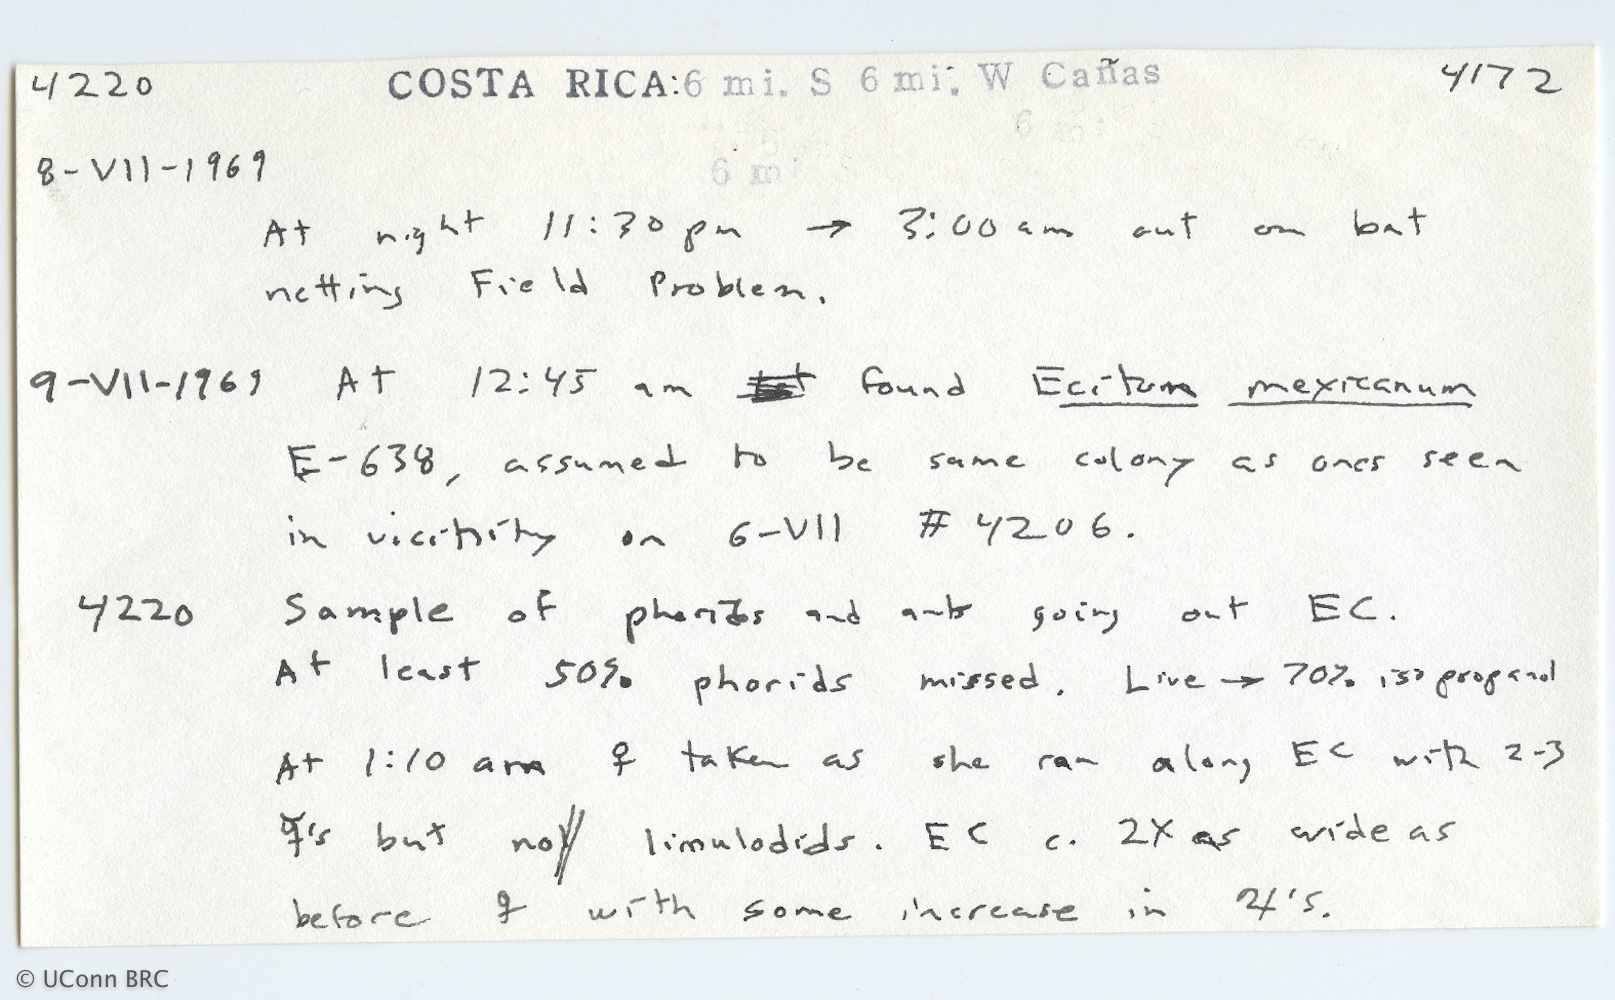 4220 COSTA RICA: 6 mi. S 6 mi. W Cañas 4172
6 mi
6 mi S
8-VII-1969
At night 11:30 pm → 3:00 am out on bat
netting Field Problem.
9-VII-1969 At 12:45 am found Eciton mexicanum
E-638, assumed to be same colony as ones seen
in vicitnity on 6-VII # 4206.
4220 Sample of phorids and ants going out EC.
At least 50% phorids missed. Live → 70% isopropanol
At 1:10 am ♀ taken as she ran along EC with 2-3
☿'s but no limulodids. EC c. 2X as wide as
before ♀ with some increase in ♃'s.
© UConn BRC